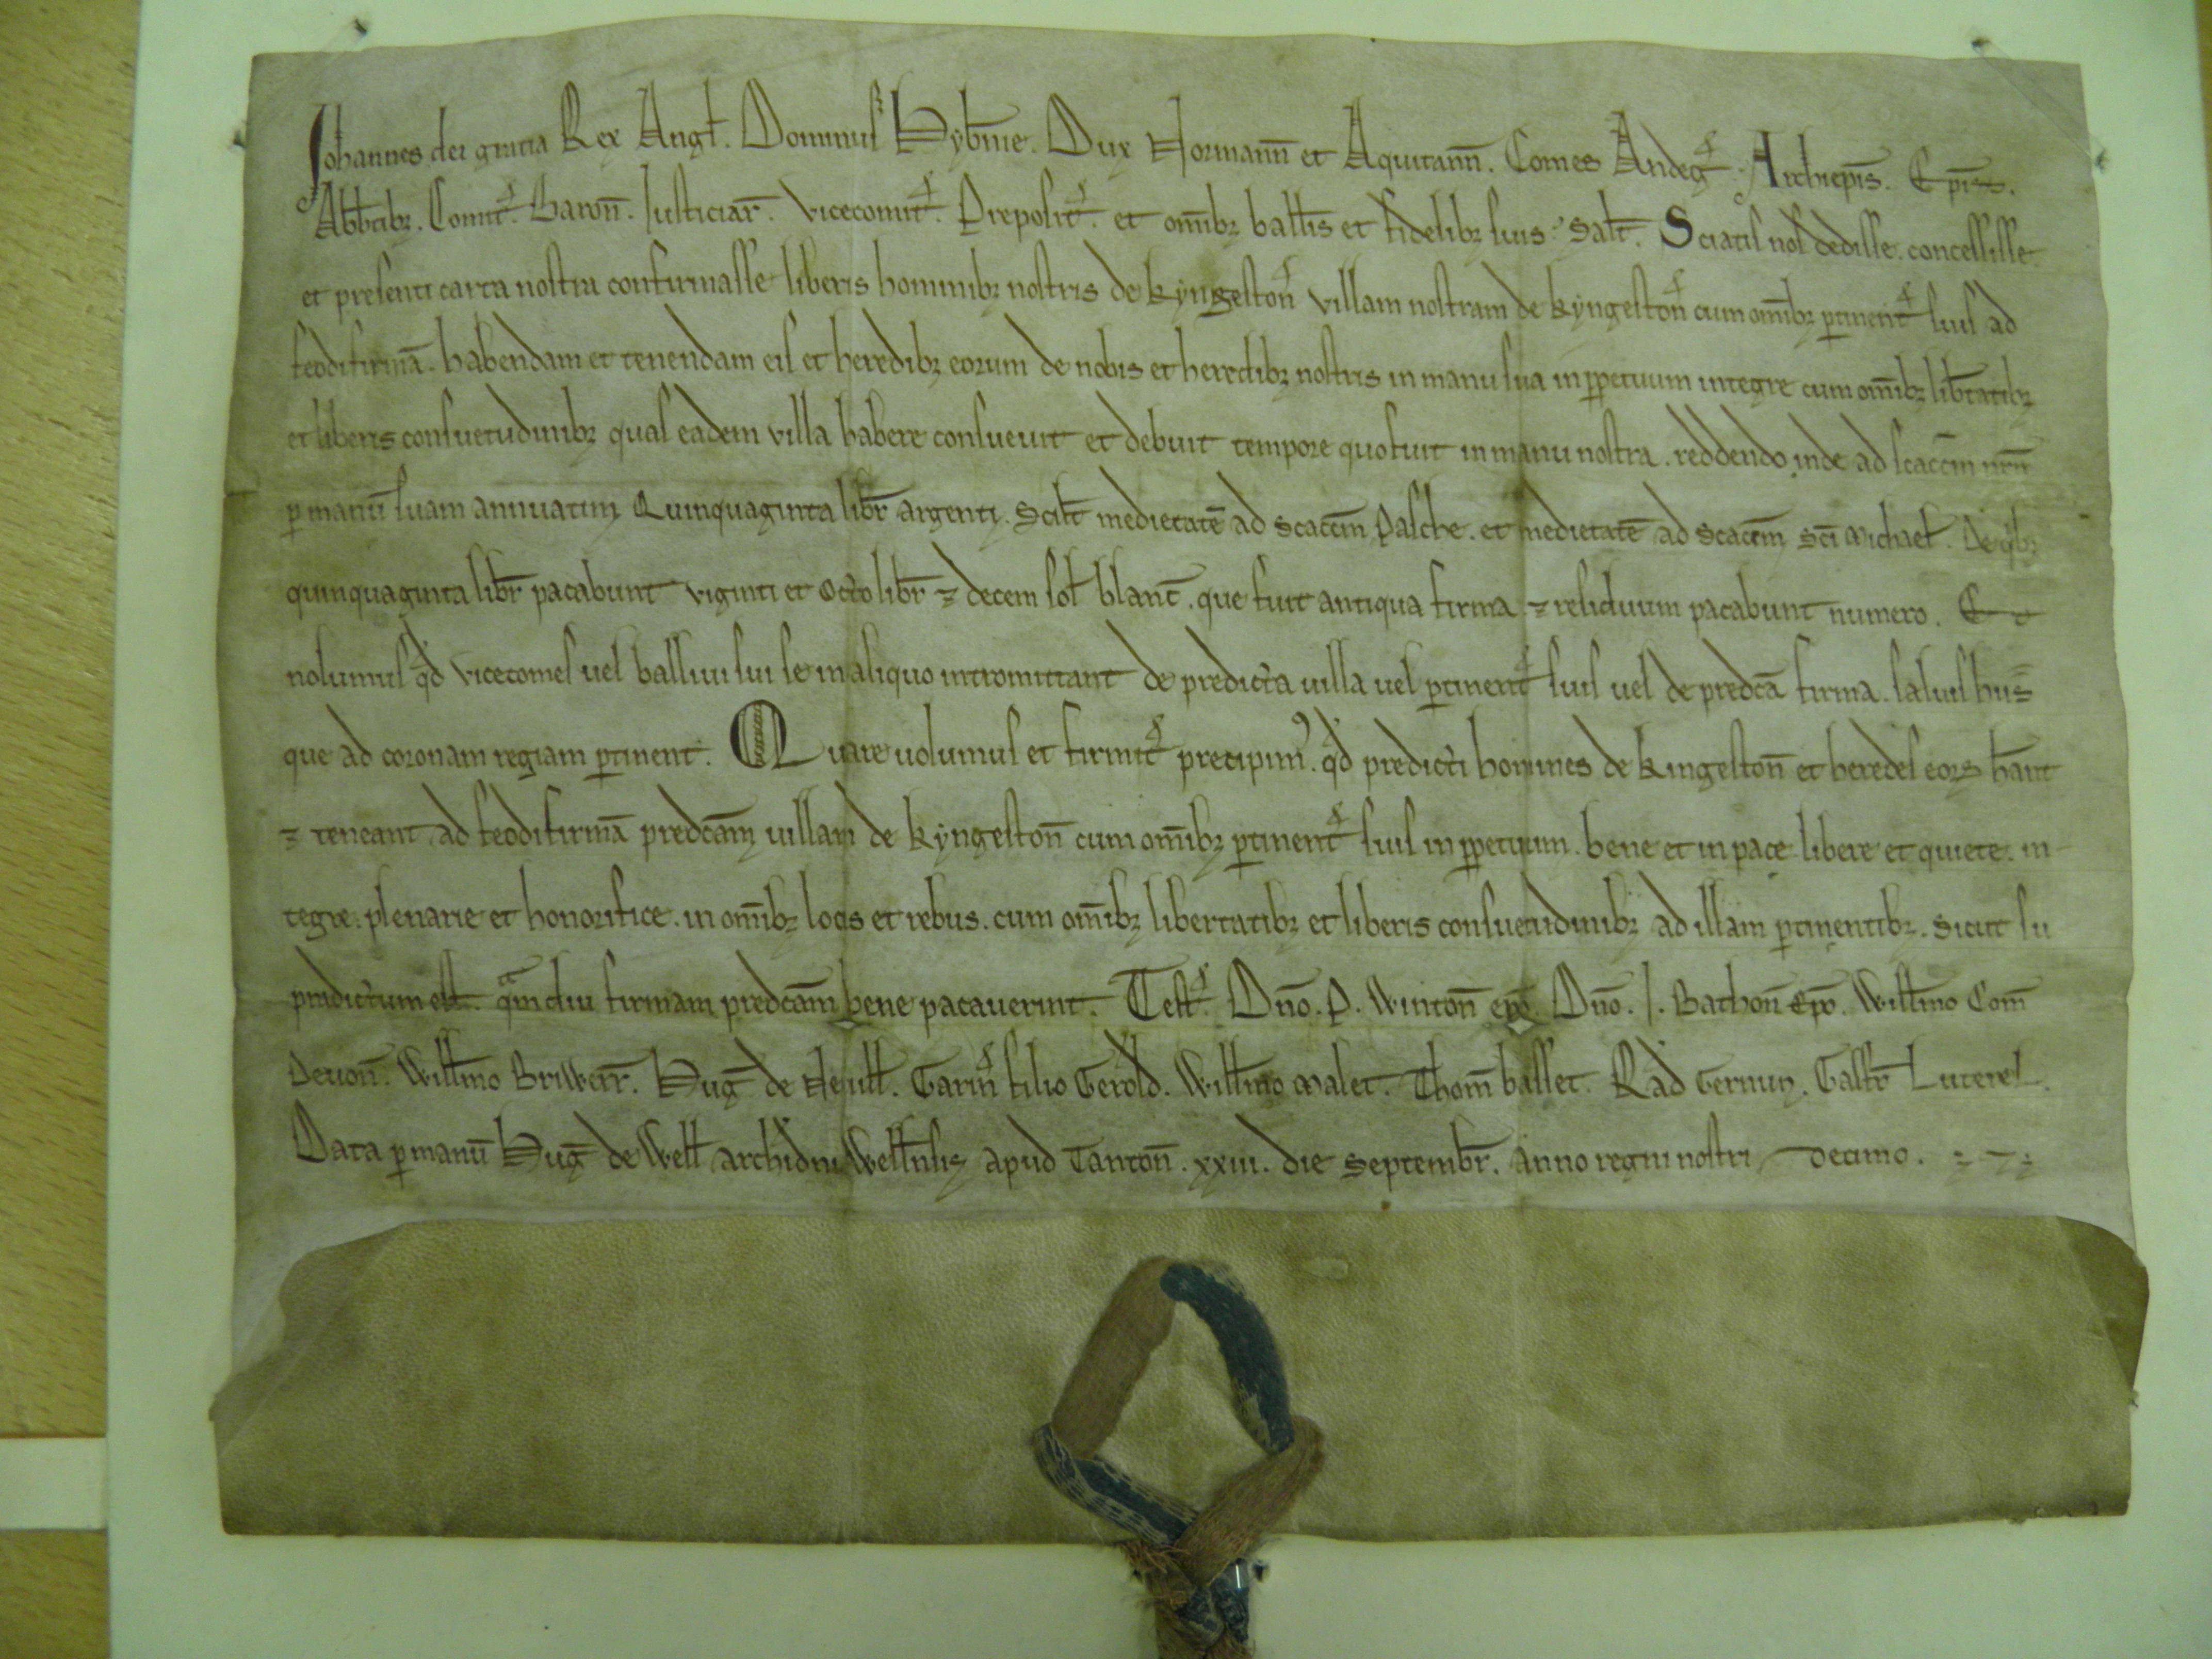 Johannes dei gratia Rex Angł. Dominus Hyb̄nie. Dux Normann̄ et Aquitann̄. Comes Andeḡ. Archiep̄is. Ep̄is.
Abb̄tib; . Comit̄. Baron̄. Justiciar̄. vicecomit̄. Preposit̄. et om̄ib; ballīs et fidelib; suis. Salt̄. Sciatis nos dedisse. concessisse.
et presenti carta nostra confirmasse liberis hominib; nostris de kyngeston̄ villam nostram de kyngeston̄ cum om̄ib; ꝑtinent̄ suis ad
feodifirmā. habendam et tenendam eis et heredib; eorum de nobis et heredib; nostris in manu sua in ꝑpetuum integre cum om̄ib; lib̄tatib;
et liberis consuetudinib; quas eadem villa habere consueuit et debuit tempore quo fuit in manu nostra. reddendo inde ad scacc̄m nr̄m
ꝑ manū suam annuatim Quinquaginta libr̄ argenti. Scilt̄ medietatē ad scacc̄m Pasche. et medietatē ad scacc̄m Sc̄i Michael̄. De qib;
quinquaginta libr̄ pacabunt viginti et octo libr̄ ⁊ decem sol̄ blanc̄. que fuit antiqua firma. ⁊ residuum pacabunt numero. Et
nolumus qd̄ vicecomes uel balliui sui se in aliquo intromittant de predicta uilla uel ꝑtinent̄ suis uel de predc̄a firma. saluis hiis
que ad coronam regiam ꝑtinent. Quare uolumus et firmit̄ precipim9. qd̄ predicti homines de kingeston̄ et heredes eorꝝ hānt
⁊ teneant ad feodifirmā predc̄am uillam de kyngeston̄ cum om̄ib; ꝑtinent̄ suis in ꝑpetuum. bene et in pace. libere et quiete. in
tegre. plenarie et honorifice. in om̄ib; locis et rebus. cum om̄ib; libertatib; et liberis consuetudinib; ad illam ꝑtinentib; . Sicut su
pradictum est. qᵃmdiu firmam predc̄am bene pacauerint. Test̄. Dn̄o. P. Winton̄ ep̄o. Dn̄o. J. Bathon̄ Ep̄o. Will̄mo Com̄
Deuon̄. Will̄mo Briwerr̄. Hug̅ de Neuill̄. Garin̄ filio Gerold̄. Will̄mo Malet. Thom̄ basset. Rad̄ Gernun. Galfr̄ Luterel.
Data ꝑ manū Hug̅ de Well̄ archid̄ni Well̄nsis apud Tanton̄. xxiii. die Septembr̄. anno regni nostri Decimo.